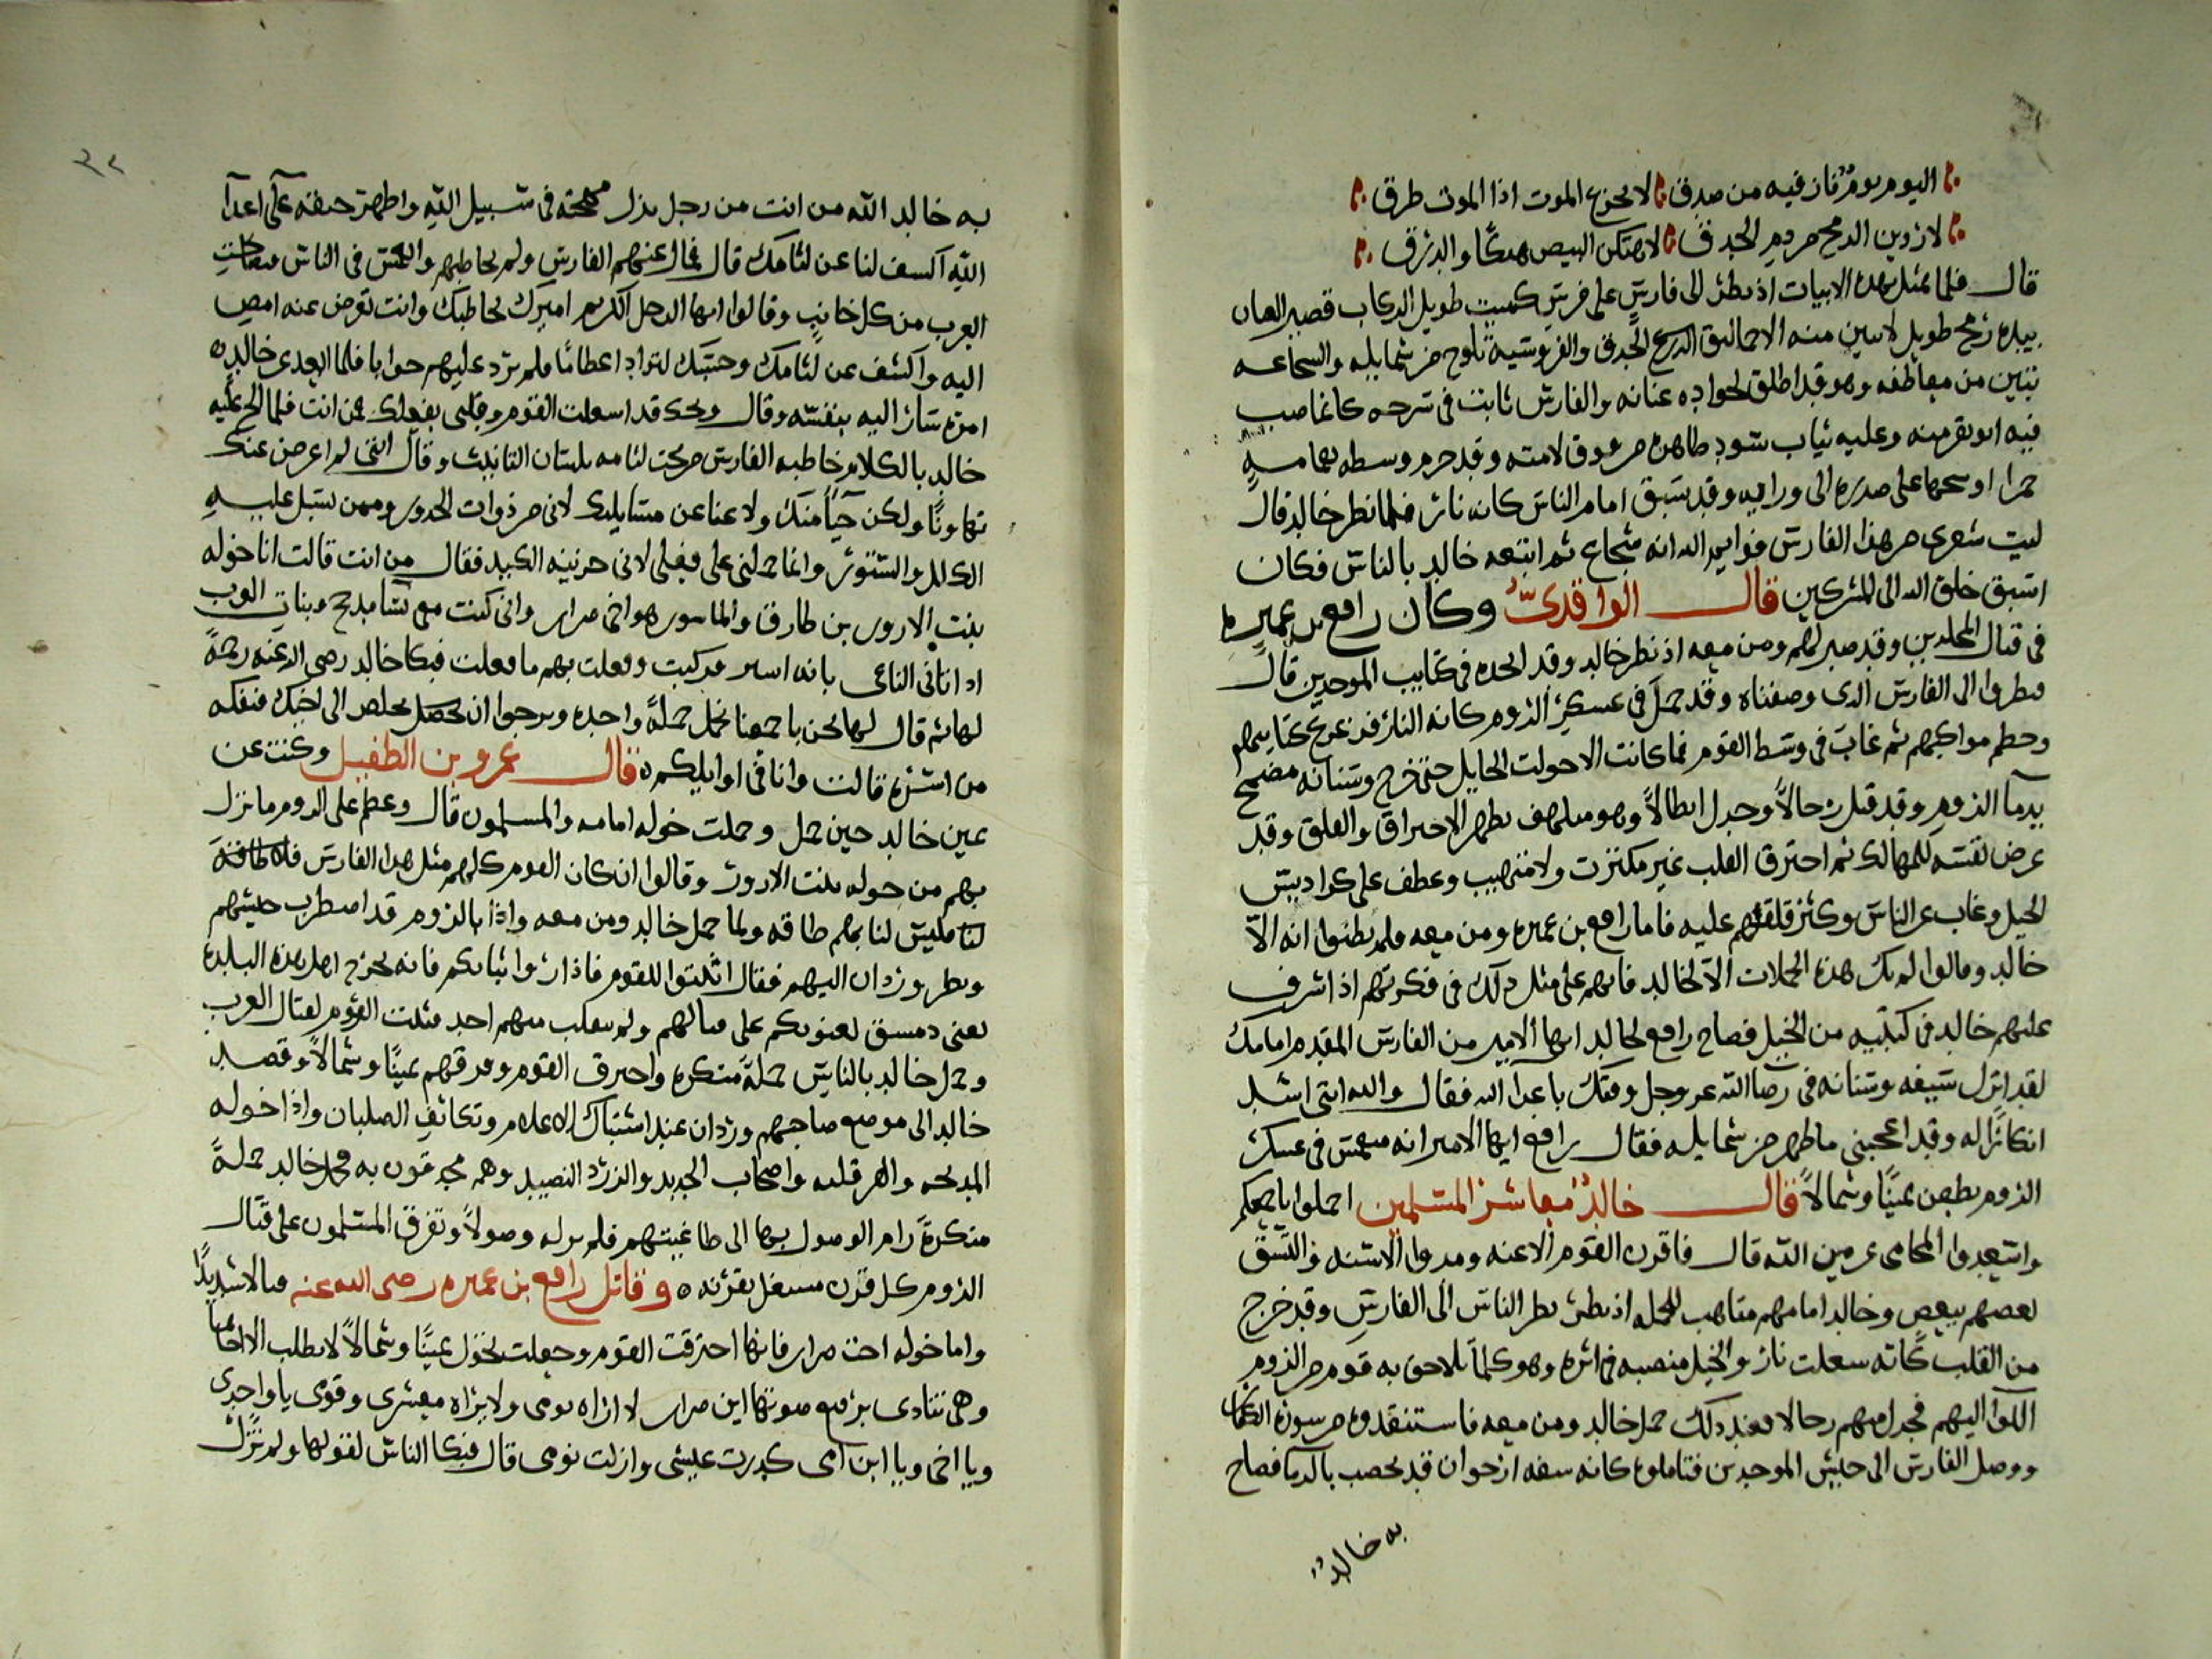 اليوم يوم فاز فيه من صدق لا يجزع الموت اذا الموت طرق
لاروين الرمح من دم الحدق لاهتكن البيض هتكا والدرق
قال فلما تمثل بهذه الابيات اذ نظر الى فارس على فرس كميت طويل الركاب قصير العنان
بيده رمح طويل لا يبين منه الا حماليق الحدق والفروسية تلوح من شمايله والشجاعه
تتبين من معاطفه وهو قد اطلق لجواده عنانه والفارس ثابت في سرجه كانما صب
فيه وعليه ثياب سود من فوق لامته وقد حزم وسطه بعمامه
حمرا وسحبها على صدره الى ورايه وقد سبق امام الناس كانه نار فلما نظر خالد قال
ليت شعري من هذا الفارس فوايم الله انه شجاع ثم اتبعه خالد بالناس فكان
اسبق خلق الله الى المشركين قال الواقدي وكان رافع بن عميره
في قتال الملحدين وقد صبر لهم ومن معه اذ نظر خالد وقد انجده في كتايب الموحدين قال
ونظروا الى الفارس الذي وصفناه وقد حمل في عسكر الروم كانه النار فزعزع كتايبهم
وحطم مواكبهم ثم غاب في وسط القوم فما كانت الا جولت الجايل حتى خرج وسنانه مضمخ
بدما الروم وقد قتل رجالا وجدل ابطالا وهو متلهف يظهر الاحتراق والقلق وقد
عرض نفسه للمهالك ثم اخترق القلب غير مكترث ولا متهيب وعطف على كراديس
الخيل وغاب عن الناس وكثر قلقهم عليه فاما رافع بن عميره ومن معه فلم يظنوا انه الا
خالد وقالوا لم تك هذه الحملات الا لخالد فانهم على مثل ذلك في فكرتهم اذ اشرف
عليهم خالد في كتيبه من الخيل فصاح رافع لخالد ايها الامير من الفارس المقدم امامك
لقد انزل سيفه وسنانه في رضا الله عز وجل وفتك باعدا الله فقال والله انني اشد
انكارا له وقد اعجبني ما ظهر من شمايله فقال رافع ايها الامير انه منغمس في عسكر
الروم يطعن يمينا وشمالا قال خالد معاشر المسلمين احملوا باجمعكم
واسعدوا المحامي عن دين الله قال فاقرن القوم الاعنه ومدوا الاسنه والتسق
بعضهم ببعض وخالد امامهم متاهب للحمله اذ نظر الناس الى الفارس وقد خرج
من القلب كانه شعلت نار والخيل منصبه في اثره وهو كلما تلاحق به قوم من الروم
الوا اليهم فجدل منهم رجالا فعند ذلك حمل خالد ومن معه فاستنقذوه من سورة
ووصل الفارس الى جيش الموحدين فتاملوه كانه سفه ارجوان قد خضب بالدما فصاح
به خالد
به خالد لله من انت من رجل بذل مهجته في سبيل الله واظهر حنقه على اعدا
الله اكشف لنا عن لثامك قال فمال عنهم الفارس ولم يخاطبهم وانغمس في الناس فصاحت
العرب من كل جانب وقالوا ايها الرجل الكريم اميرك يخاطبك وانت تعرض عنه امض
اليه واكشف عن لثامك وحسبك لتزداد اعظاما فلم يرد عليهم جوابا فلما ابعد عن خالد
امره سار اليه بنفسه وقال ويحك قد اشغلت القوم وقلبي بفعلك من انت فلما الح عليه
خالد بالكلام خاطبه الفارس من تحت لثامه بلسان التانيث وقال انني لم اعرض عنك
تهاونا ولكن حيا منك ولا عنا عن مسايلتك لاني من ذوات الخدور وممن تسبل عليه
الكلل والستور وانما حملني على فعلي لاني حزينه الكبد فقال من انت قالت انا خوله
بنت الازور بن طارق والماسور هو اخي ضرار واني كنت مع نسا مذحج وبنات العرب
اذ اتاني الناعي بانه اسير فركبت وفعلت بهم ما فعلت فبكا خالد رضي الله عنه رحمة
لها ثم قال لها نحن باجمعنا نحمل حملة واحده ونرجوا ان نصل الى اخيك فنفكه
من اسره قالت وانا في اوايلكم قال عمرو بن الطفيل وكنت عن
يمين خالد حين حمل وحملت خوله امامه والمسلمون قال وعظم على الروم ما نزل
بهم من خوله بنت الازور وقالوا ان كان القوم كلهم مثل هذا الفارس
فليس لنا بهم طاقه ولما حمل خالد ومن معه واذا بالروم قد اضطرب جيشهم
ونظر وردان اليهم فقال اثبتوا للقوم فاذا راوا ثباتكم فانه يخرج اهل هذه البلده
يعني دمسق لعينوكم على قتالهم ولم ينفلت منهم احد فثبت القوم لقتال العرب
وحمل خالد بالناس حملة منكره واخترق القوم وفرقهم يمينا وشمالا وقصد
خالد الى موضع صاحبهم وردان عند اشتباك الاعلام وتكاثف الصلبان واذا حوله
المذبحه والهرقليه واصحاب الحديد والزرد النضيد وهم محدقون به فحمل خالد حملة
منكرة رام الوصول بها الى طاغيتهم فلم ير له وصولا وتفرق المسلمون على قتال
الروم كل قرن مشتغل بقرنه وقاتل رافع بن عميره رضي الله عنه قتالا شديدا
واما خوله اخت ضرار فانها اخترقت القوم وجعلت تجول يمينا وشمالا لا تطلب الا اخاها
وهي تنادي برفيع صوتها اين ضرار لا اراه يومي ولا يراه معشري وقومي يا واحدي
ويا اخي ويا ابن امي كدرت عيشي وازلت نومي قال فبكا الناس لقولها ولم تزل